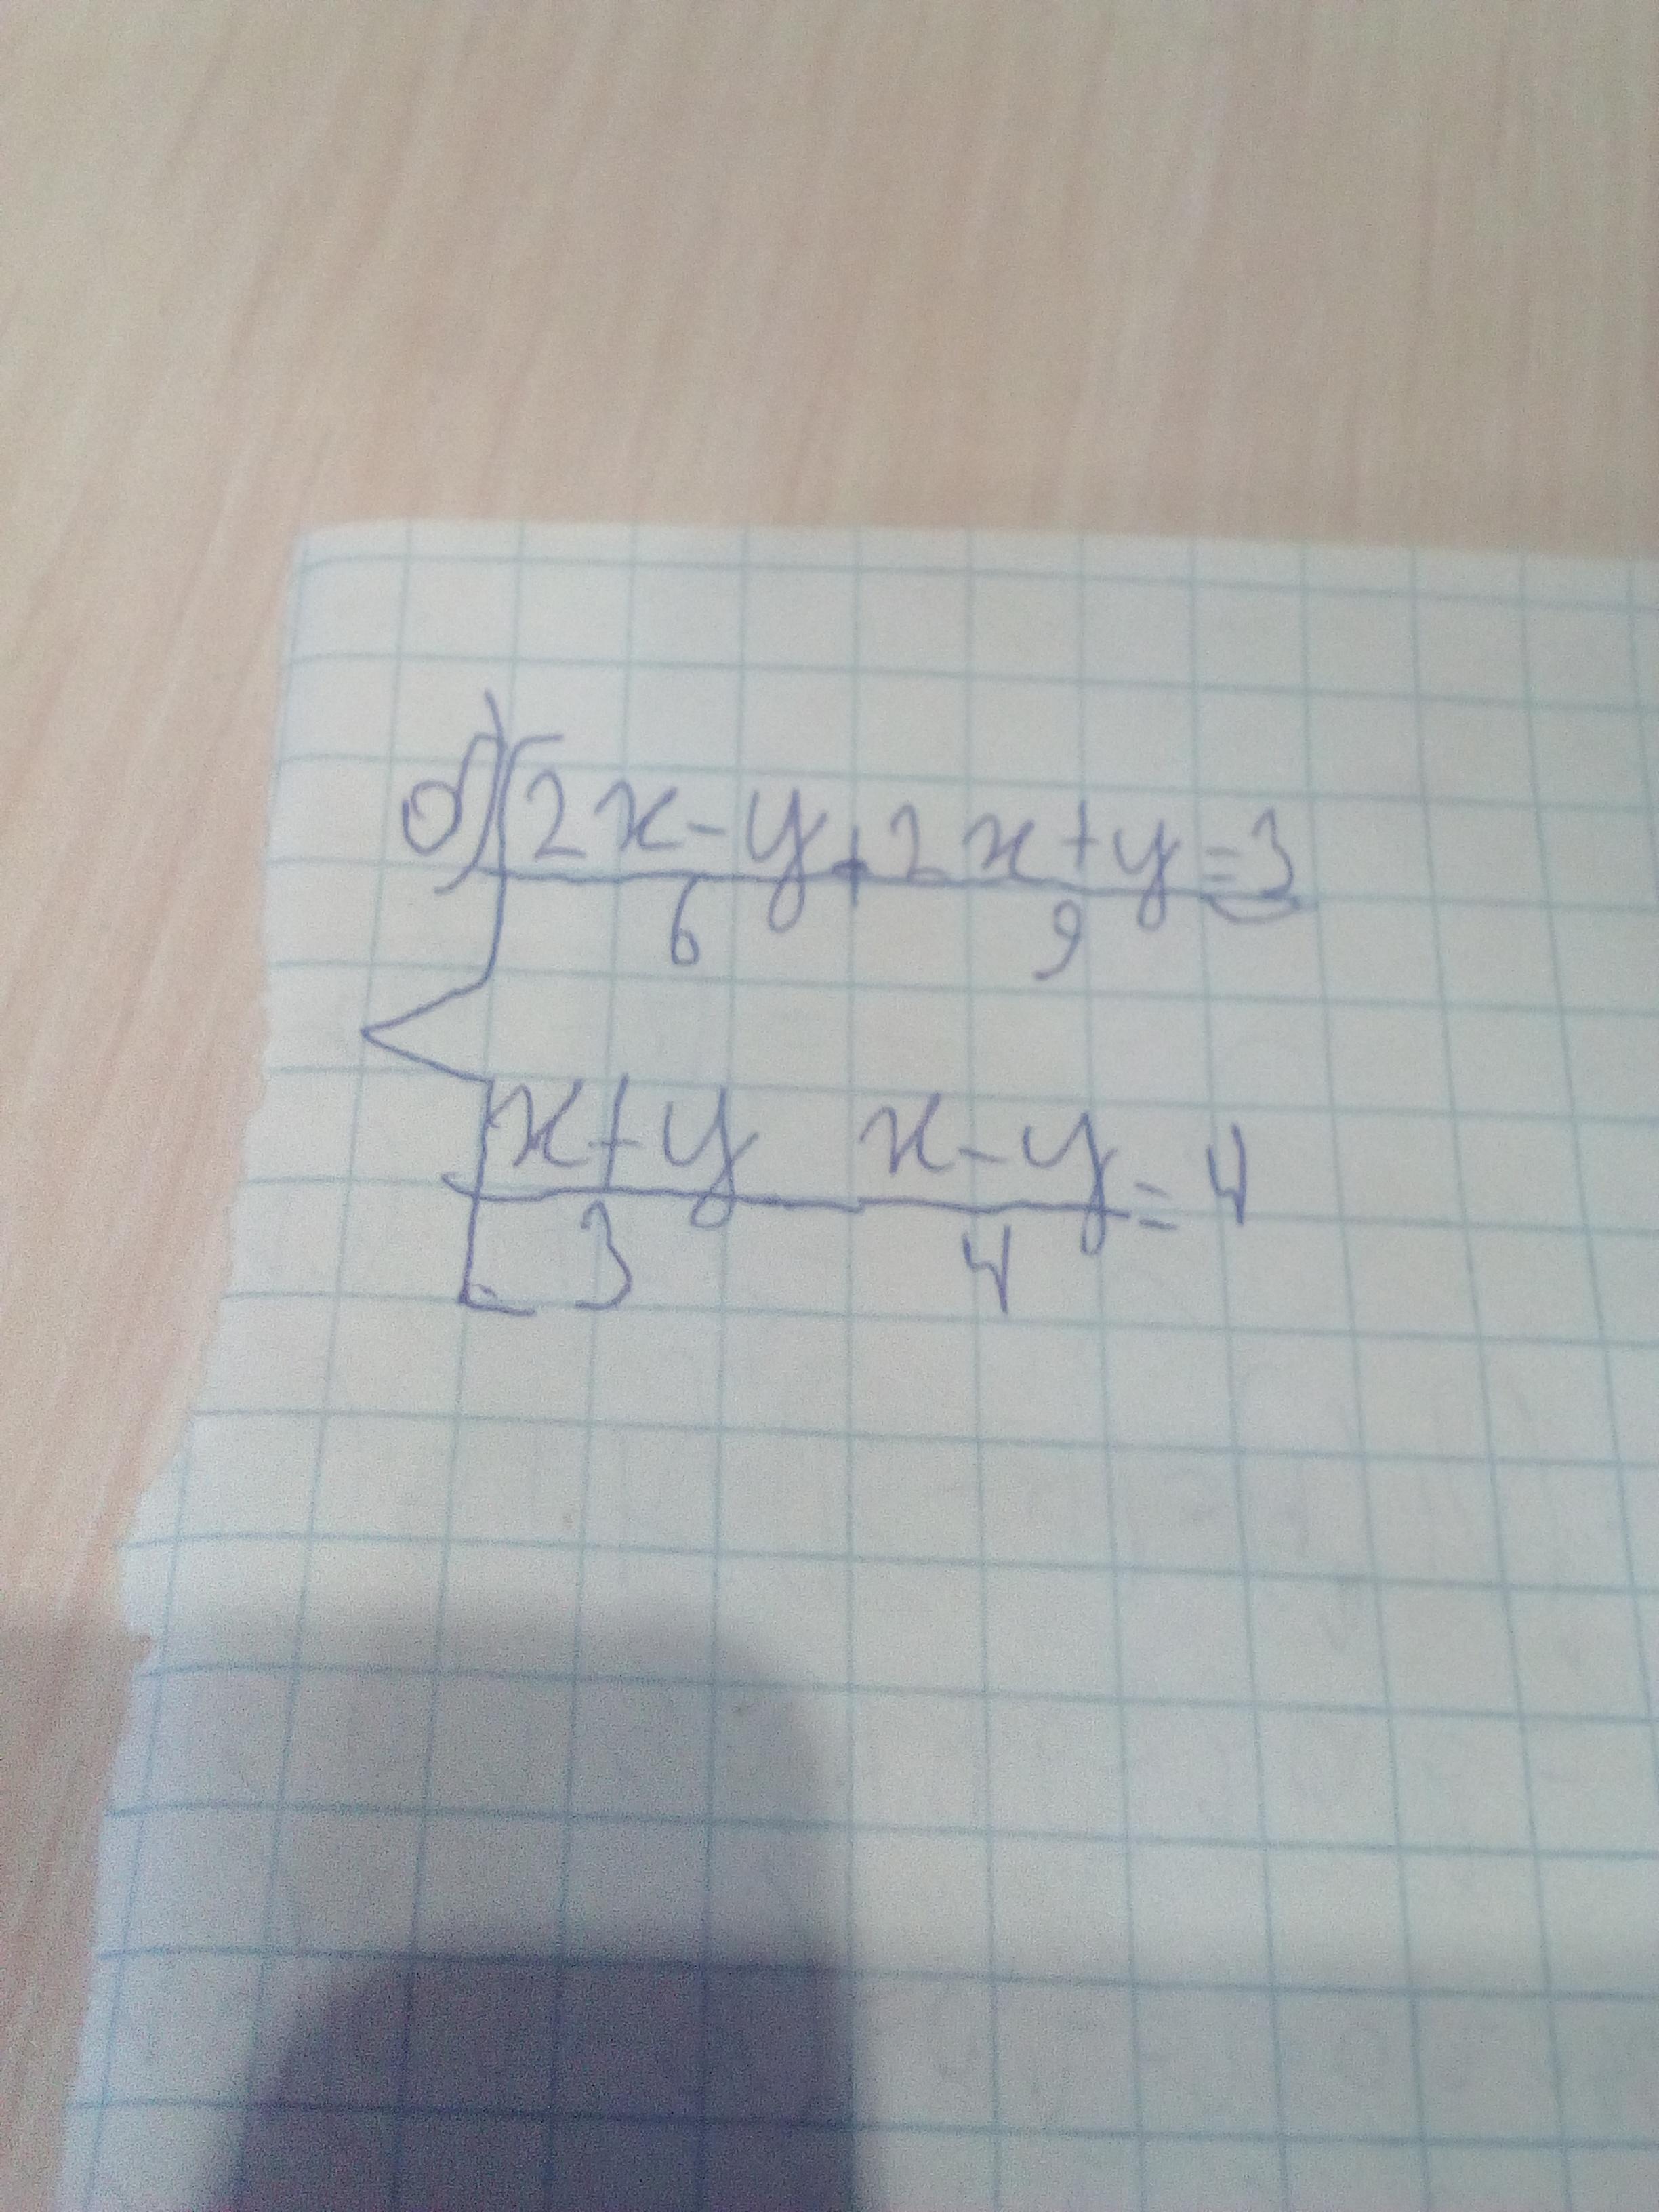 б) 2x-y/6 + 2x+y/9 = 3
x+y/3 - x-y/4 = 4